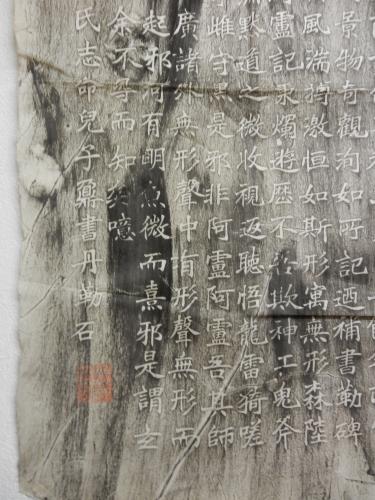 景物奇觀洵如所記迺補書勒碑
風湍搏激恒如斯形寓無形森陸
盧記求燭遊歷不神工鬼斧
默道之微收視返聽悟龍雷猗嗟
雌守黑是邪非阿盧阿盧吾其師
廣諸無形聲中有形聲無形而
起邪阿有朙微而熹邪是謂玄
余不而知契噫
氏志命兒子鼐書丹勒石